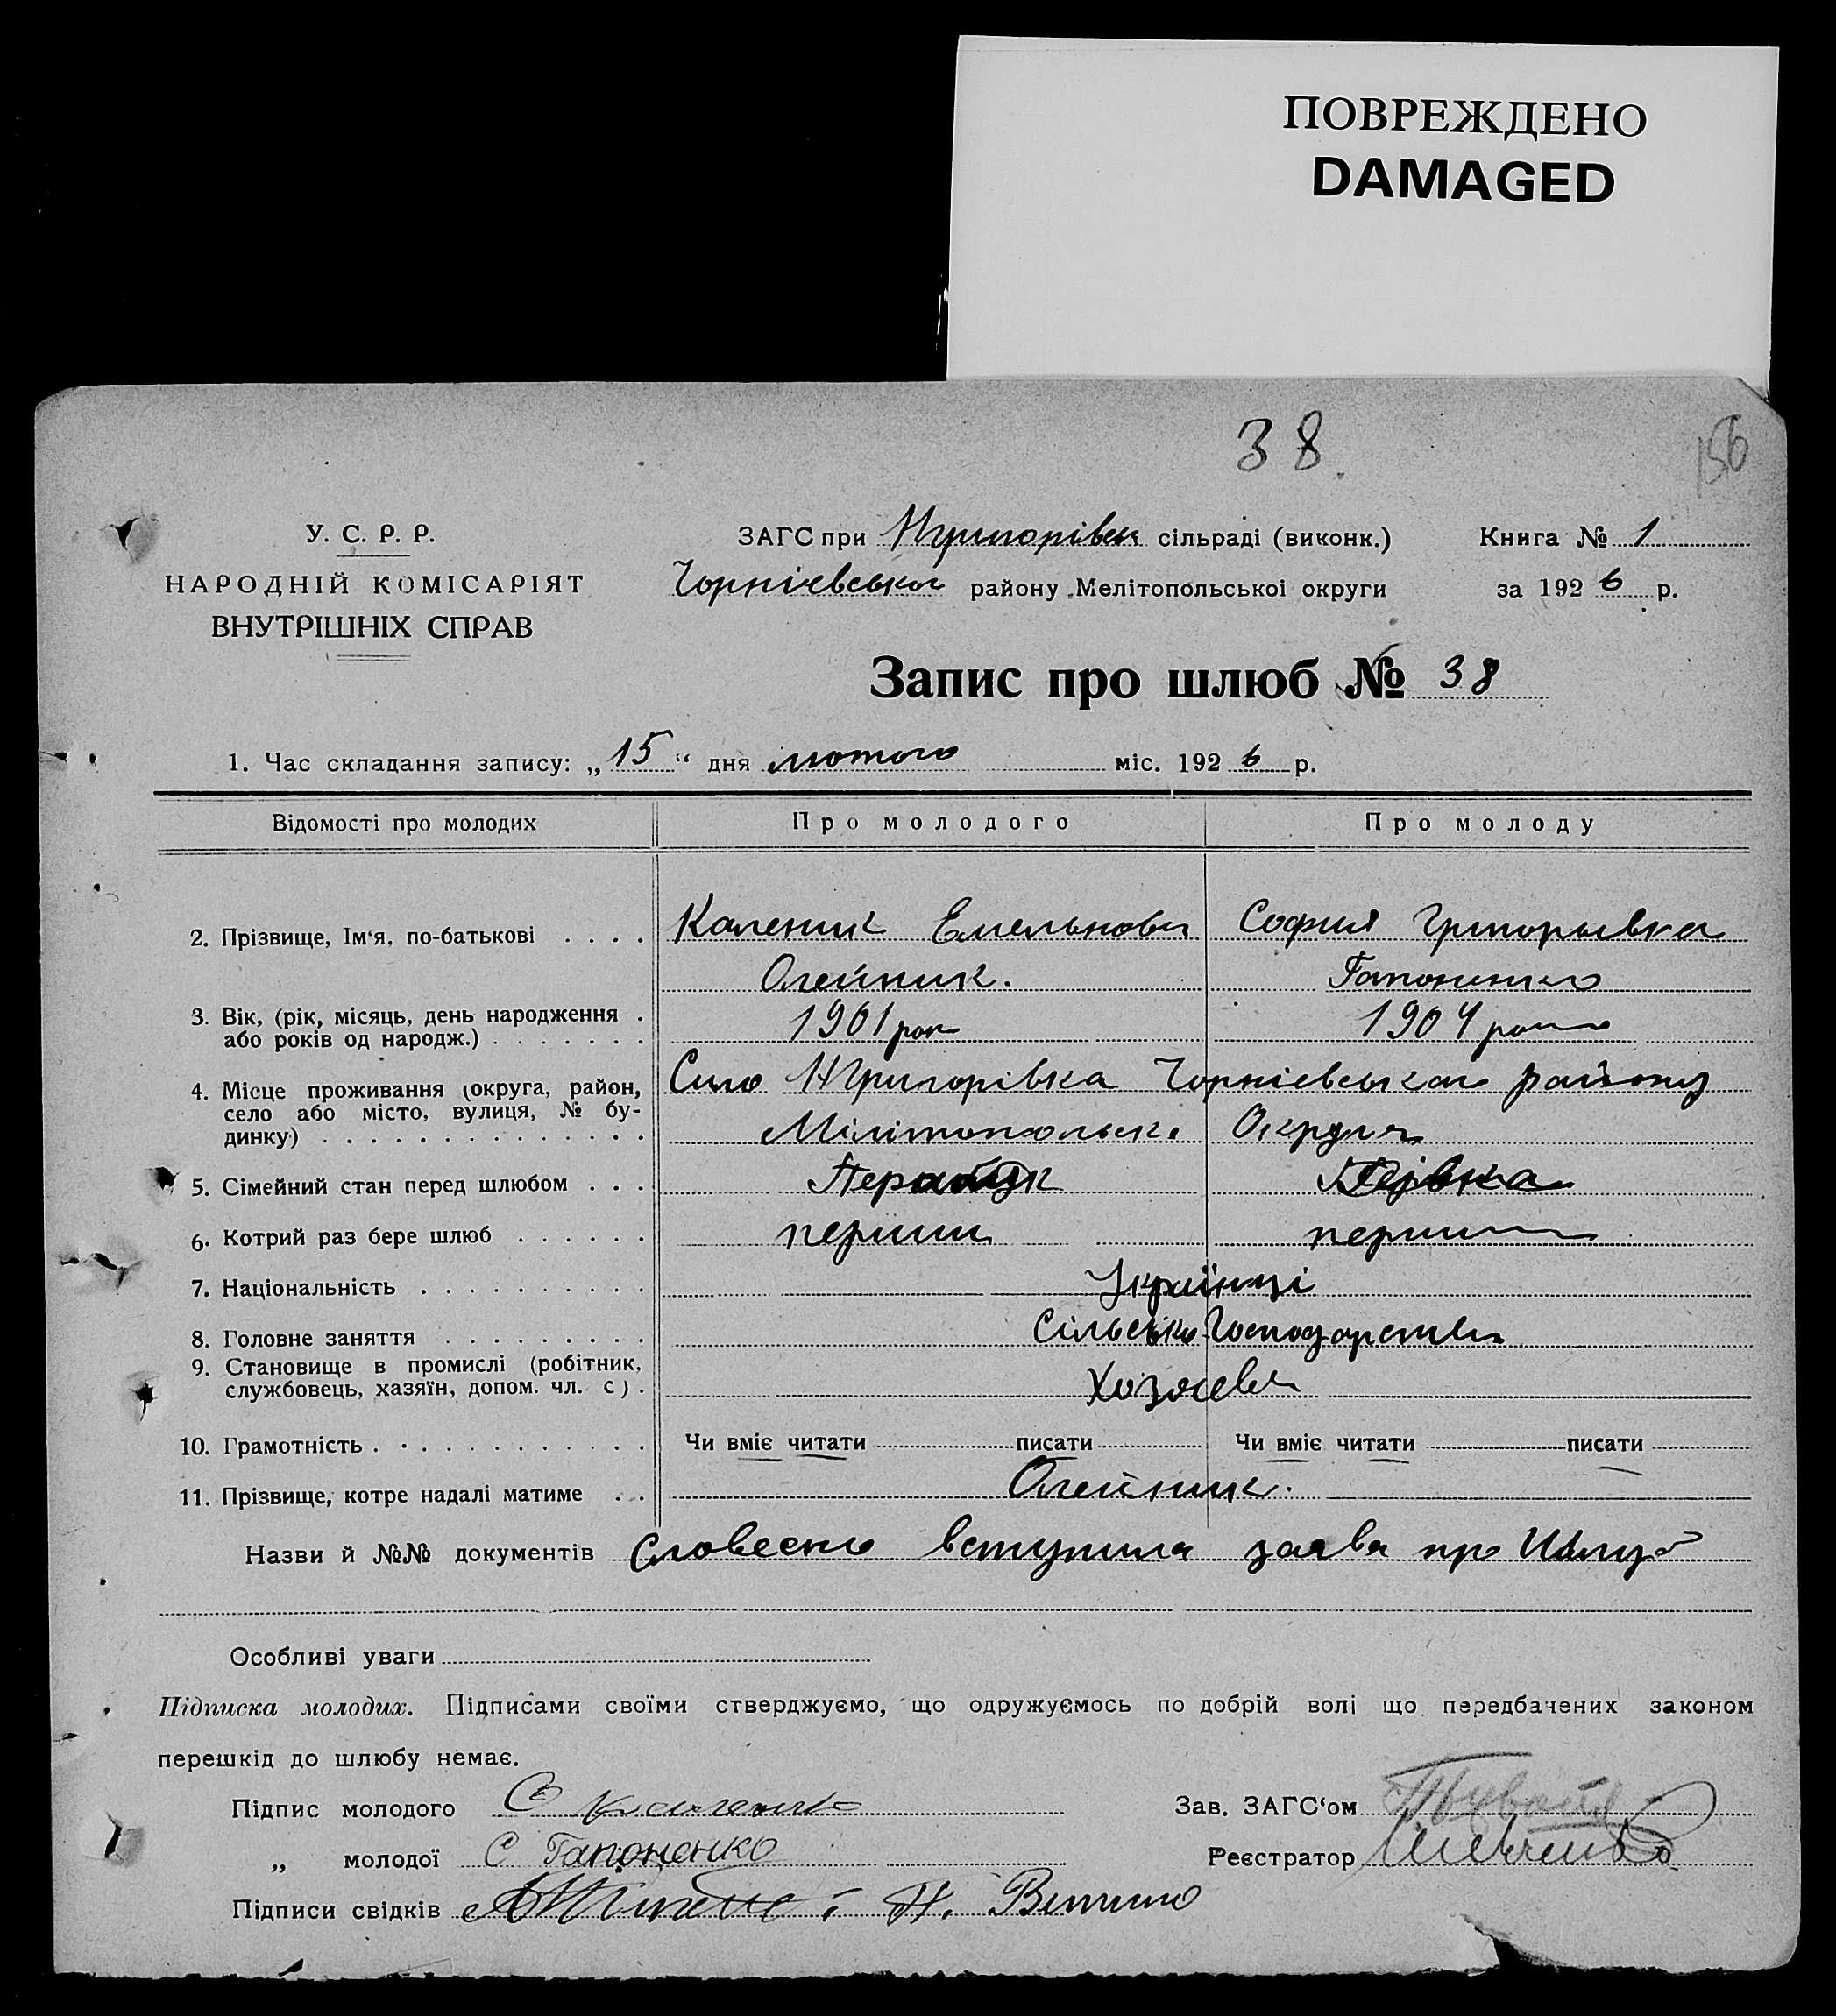 ПОВРЕЖДЕНО
DAMAGED
38.
156
У. С. Р. Р.
НАРОДНІЙ КОМІСАРІЯТ
ВНУТРІШНІХ СПРАВ
ЗАГС при НГригорівск сільраді (виконк.)
Чорніевської району Мелітопольської округи
Книга № 1
за 1926 р.
Запис про шлюб № 38
1. Час складання запису: „15“ дня лютого міс. 1926 р.
Відомості про молодих Про молодого Про молоду
2. Прізвище, Ім‘я, по-батькові . . . . Каленик Емельнови София Григорьевка
Олейник. Гапоненко
3. Вік, (рік, місяць, день народження .
або років од народж.) . . . . . . . 1901 рок 1904 рок
4. Місце проживання (округа, район,
село або місто, вулиця, № бу-
динку) . . . . . . . . . . . . . .
Село НГригорівка Чорніевського району
Мілітопольск. Округи
5. Сімейний стан перед шлюбом . . .
6. Котрий раз бере шлюб . . . . . . перший перший
7. Національність . . . . . . . . . . Українці
8. Головне заняття . . . . . . . . . Сільсько-Господарство
9. Становище в промислі (робітник,
службовець, хазяїн, допом. чл. с) . Хозяева
10. Грамотність . . . . . . . . . . . . Чи вміє читати писати Чи вміє читати писати
11. Прізвище, котре надалі матиме . . Олейник.
Назви й №№ документів Словесно вступила заява про Шлюб
Особливі уваги
Підписка молодих. Підписами своїми стверджуємо, що одружуємось по добрій волі що передбачених законом
перешкід до шлюбу немає.
Підпис молодого
Зав. ЗАГС‘ом
„ молодої С Гапоненко
Реєстратор Шевченко
Підписи свідків